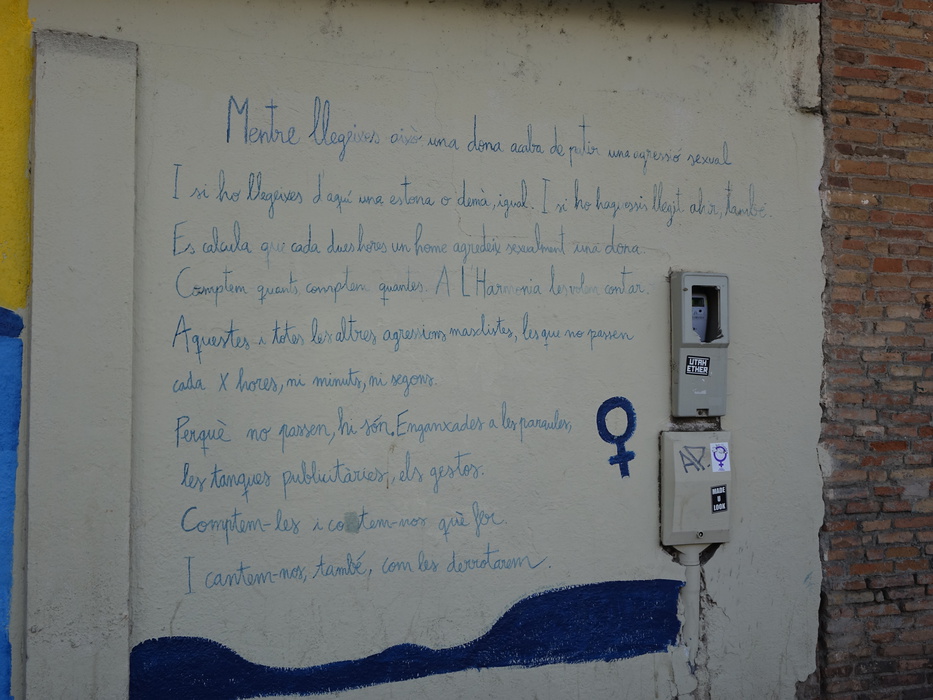 Mentre llegeixes això una dona acaba de patir una agressió sexual
I si ho llegeixes d'aquí una estona o demà, igual. I si ho haguessis llegit ahir, també.
Es calcula que cada dues hores un home agredeix sexualment una dona.
Comptem quants, comptem quantes. A L'Harmonia les volem contar.
Aquestes i totes les altres agressions masclistes, les que no passen
cada X hores, ni minuts, ni segons.
Perquè no passen, hi són. Enganxades a les paraules,
les tanques publicitàries, els gestos.
Comptem-les i co tem-nos què fer.
I cantem-nos, també, com les derrotarem.
UTAH
ETHER
MADE
U
LOOK